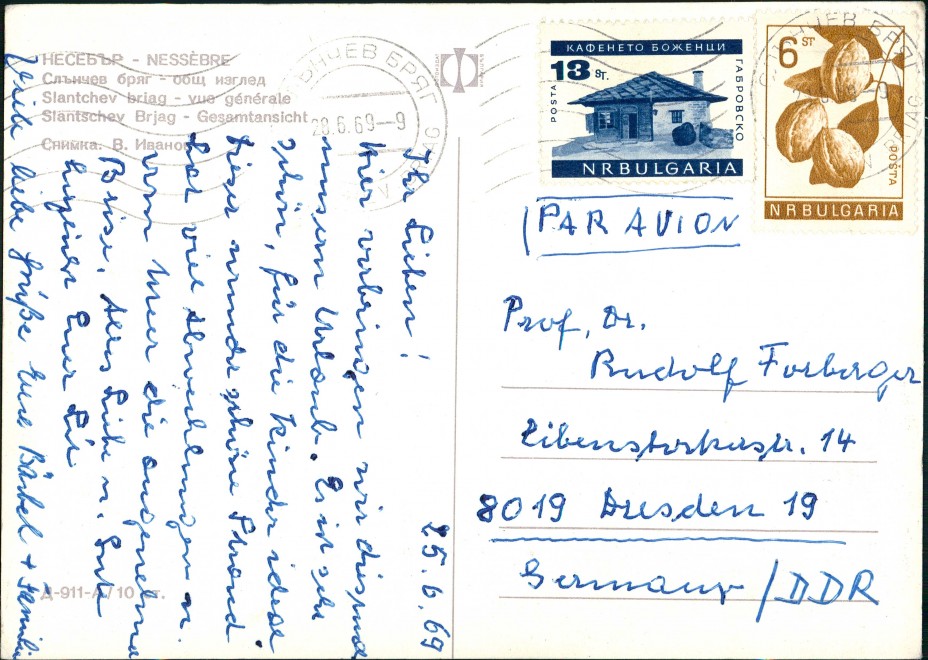 НЕСЕБЪР - NESSÈBRE
Слънчев бряг - общ изглед
Slantchev briag - vue générale
Slantschev Brjag - Gesamtansicht
Снимка. В. Иванов
Д-911-А / 10 ст.
25.6.69
Ihr Lieben!
Hier verbringen wir diesmal
unsern Urlaub. Es ist sehr
schön, für die Kinder ideal
dieser wunderschöne Strand
hat viel Abwechslung u.
vom Meer die angenehme
Brise. Alles Liebe u. Gute
Euer
liebe Grüße Eure Bärbel + Familie
СЛЪНЧЕВ БРЯГ
28.6.69-9
КАФЕНЕТО БОЖЕНЦИ
13 ST.
POSTA
ГАБРОВСКО
NRBULGARIA
6 ST
POSTA
NRBULGARIA
PAR AVION
Prof. Dr.
Rudolf Forberger
Zibenstorkastr. 14
8019 Dresden 19
Germany / DDR